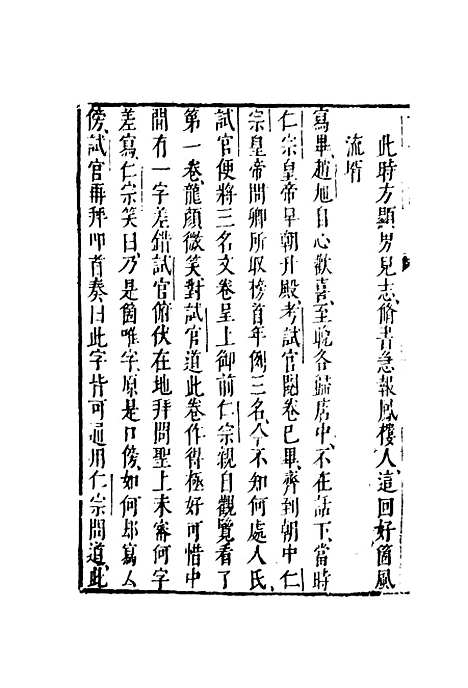 此時方顯男兒志、脩書急報鳳樓人、這回好箇風
流壻
寫畢、趙旭自心歡喜、至晚各歸店中、不在話下、當時
仁宗皇帝早朝升殿、考試官閱卷已畢、齊到朝中、仁
宗皇帝問卿所取榜首年例三名、今不知何處人氏、
試官便將三名文卷呈上御前、仁宗親自觀覽、看了
第一卷、龍顏微笑、對試官道、此卷作得極好、可惜中
間有一字差錯、試官俯伏在地、拜問聖上、未審何字
差寫、仁宗笑曰、乃是箇唯字、原是口傍、如何却寫厶
傍、試官再拜叩首奏曰、此字皆可通用、仁宗問道、此